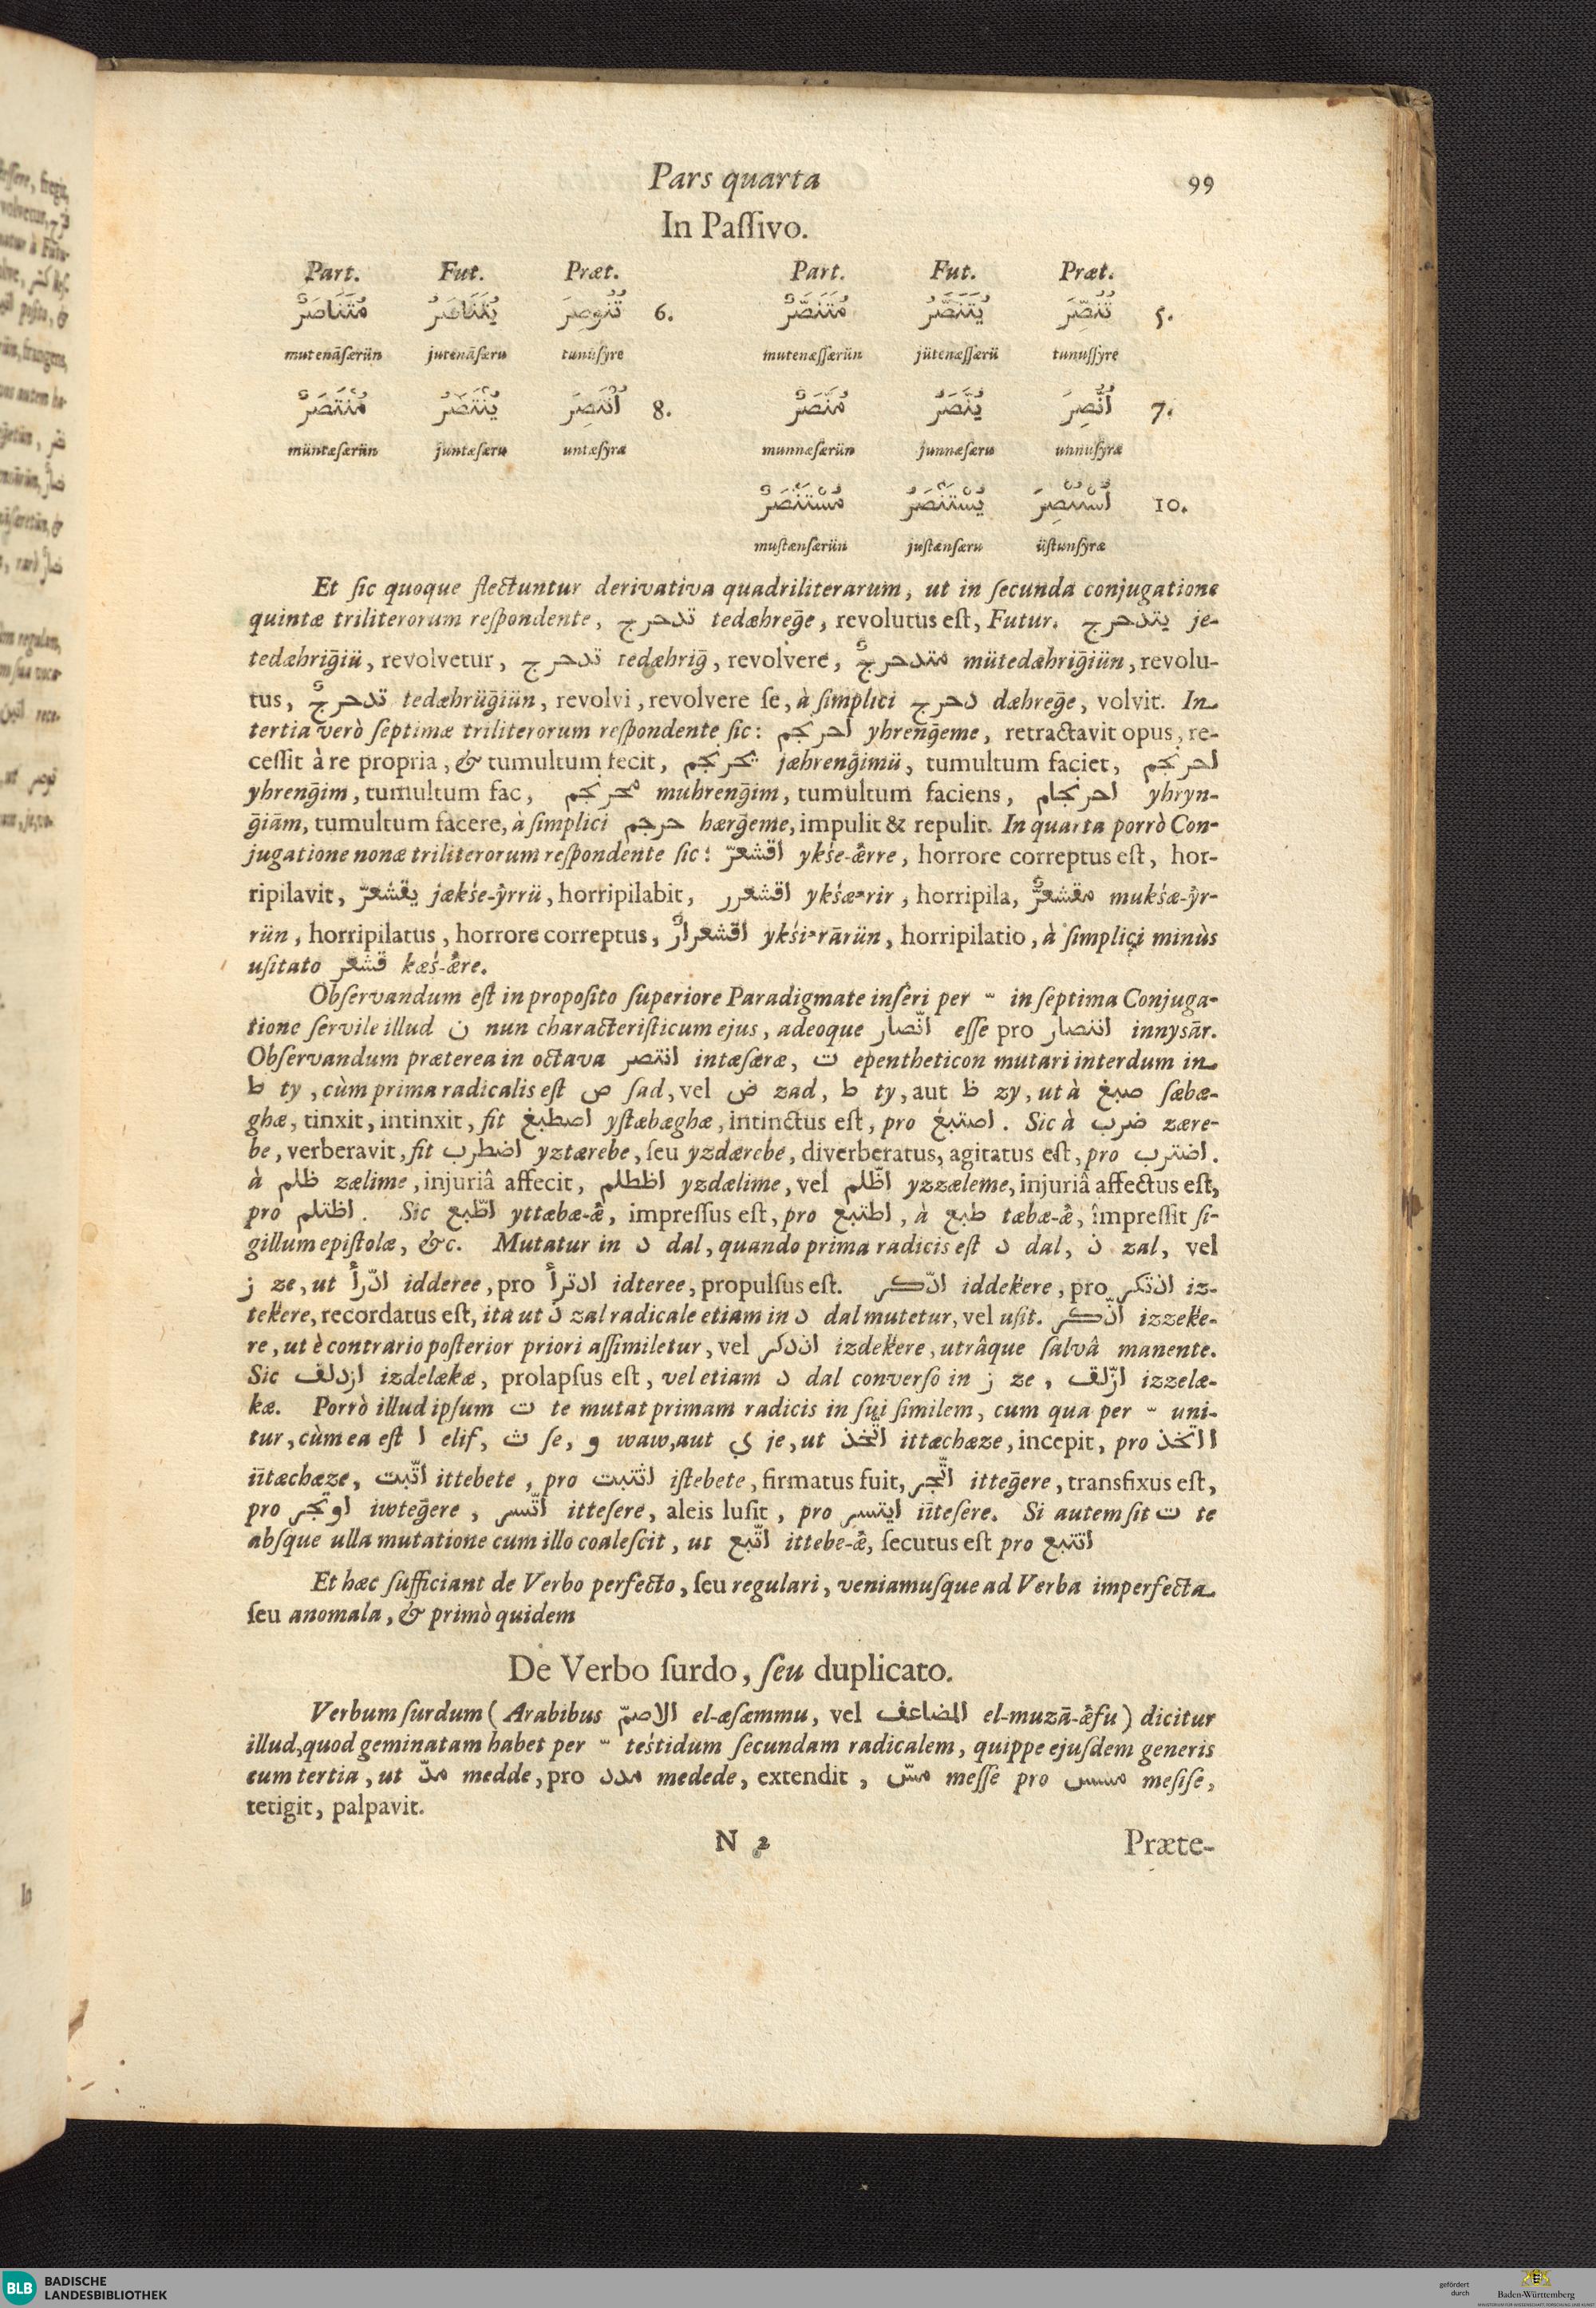 Pars quarta 99
In Paſſivo.
Part. Fut. Præt. Part. Fut. Præt.
مُتَنَاصَرٌ يُتَنَاصَرُ تُنُوصِرَ 6. مُتَنَصَّرٌ يُتَنَصَّرُ تُنُصِّرَ 5.
mutenāſærün jutenāſæru tunūſyre mutenæſſærün jütenæſſærü tunuſſyre
مُنْتَصَرٌ يُنْتَصَرُ اُنْتُصِرَ 8. مُنَّصَرٌ يُنَّصَرُ اُنُّصِرَ 7.
müntæſærün juntæſæru untæſyræ munnæſærün junnæſæru unnuſyræ
مُسْتَنْصَرٌ يُسْتَنْصَرُ اُسْتُنْصِرَ 10.
muſtænſærün juſtænſæru üſtunſyræ
Et ſic quoque flectuntur derivativa quadriliterarum, ut in ſecunda conjugatione
quintæ triliterorum reſpondente, تدحرج tedæhreḡe, revolutus eſt, Futur. يتدحرج je-
tedæhriḡiü, revolvetur, تدحرج tedæhriḡ, revolvere, متدحرجٌ mütedæhriḡiün, revolu-
tus, تدحرجٌ tedæhrüḡiün, revolvi, revolvere ſe, à ſimplici دحرج dæhreḡe, volvit. In
tertia verò ſeptimæ triliterorum reſpondente ſic: احرنجم yhrenḡeme, retractavit opus, re-
ceſſit à re propria, & tumultum fecit, يحرنجم jæhrenḡimü, tumultum faciet, احرنجم
yhrenḡim, tumultum fac, محرنجم muhrenḡim, tumultum faciens, احرنجام yhryn-
ḡiām, tumultum facere, à ſimplici حرجم hærḡeme, impulit & repulit. In quarta porrò Con-
jugatione nonæ triliterorum reſpondente ſic: اقشعرّ ykśe-æ̂rre, horrore correptus eſt, hor-
ripilavit, يقشعرّ jækśe-ŷrrü, horripilabit, اقشعرر ykśæ᾽rir, horripila, مقشعرٌّ mukśæ-ŷr-
rün, horripilatus, horrore correptus, اقشعرارٌ ykśi᾽rārün, horripilatio, à ſimplici minùs
uſitato قشعر kæś-æ̂re.
Obſervandum eſt in propoſito ſuperiore Paradigmate inſeri per ّ in ſeptima Conjuga-
tione ſervile illud ن nun characteriſticum ejus, adeoque انّصار eſſe pro اننصار innysār.
Obſervandum præterea in octava انتصر intæſæræ, ت epentheticon mutari interdum in
ط ty, cùm prima radicalis eſt ص ſad, vel ض zad, ط ty, aut ظ zy, ut à صبغ ſæbæ-
ghæ, tinxit, intinxit, fit اصطبغ yſtæbæghæ, intinctus eſt, pro اصتبغ. Sic à ضرب zære-
be, verberavit, fit اضطرب yztærebe, ſeu yzdærebe, diverberatus, agitatus eſt, pro اضترب.
à ظلم zælime, injuriâ affecit, اظطلم yzdælime, vel اظّلم yzzæleme, injuriâ affectus eſt,
pro اظتلم. Sic اطّبع yttæbæ-æ̂, impreſſus eſt, pro اطتبع, à طبع tæbæ-æ̂, impreſſit ſi-
gillum epiſtolæ, &c. Mutatur in د dal, quando prima radicis eſt د dal, ذ zal, vel
ز ze, ut ادّرأ idderee, pro ادترأ idteree, propulſus eſt. ادّكر iddekere, pro اذتكر iz-
tekere, recordatus eſt, ita ut ذ zal radicale etiam in د dal mutetur, vel uſit. اذّكر izzeke-
re, ut è contrario poſterior priori aſſimiletur, vel اذدكر izdekere, utrâque ſalvâ manente.
Sic ازدلق izdelækæ, prolapſus eſt, vel etiam د dal converſo in ز ze, ازّلق izzelæ-
kæ. Porrò illud ipſum ت te mutat primam radicis in ſui ſimilem, cum qua per ّ uni-
tur, cùm ea eſt ا elif, ث ſe, و waw, aut ي je, ut اتّخذ ittæchæze, incepit, pro ااتخذ
iītæchæze, اتّبت ittebete, pro اثتبت iſtebete, firmatus fuit, اتّجر itteḡere, transfixus eſt,
pro اوتجر iwteḡere, اتّسر itteſere, aleis luſit, pro ايتسر iīteſere. Si autem ſit ت te
absque ulla mutatione cum illo coaleſcit, ut اتّبع ittebe-æ̂, ſecutus eſt pro اتتبع
Et hæc ſufficiant de Verbo perfecto, ſeu regulari, veniamuſque ad Verba imperfecta
ſeu anomala, & primò quidem
De Verbo ſurdo, ſeu duplicato.
Verbum ſurdum (Arabibus الاصمّ el-æſæmmu, vel المضاعف el-muzā-æ̂fu) dicitur
illud, quod geminatam habet per ّ teśtidum ſecundam radicalem, quippe ejuſdem generis
cum tertia, ut مدّ medde, pro مدد medede, extendit, مسّ meſſe pro مسس meſiſe,
tetigit, palpavit.
N 2 Præte-
BLB BADISCHE
LANDESBIBLIOTHEK
gefördert
durch
Baden-Württemberg